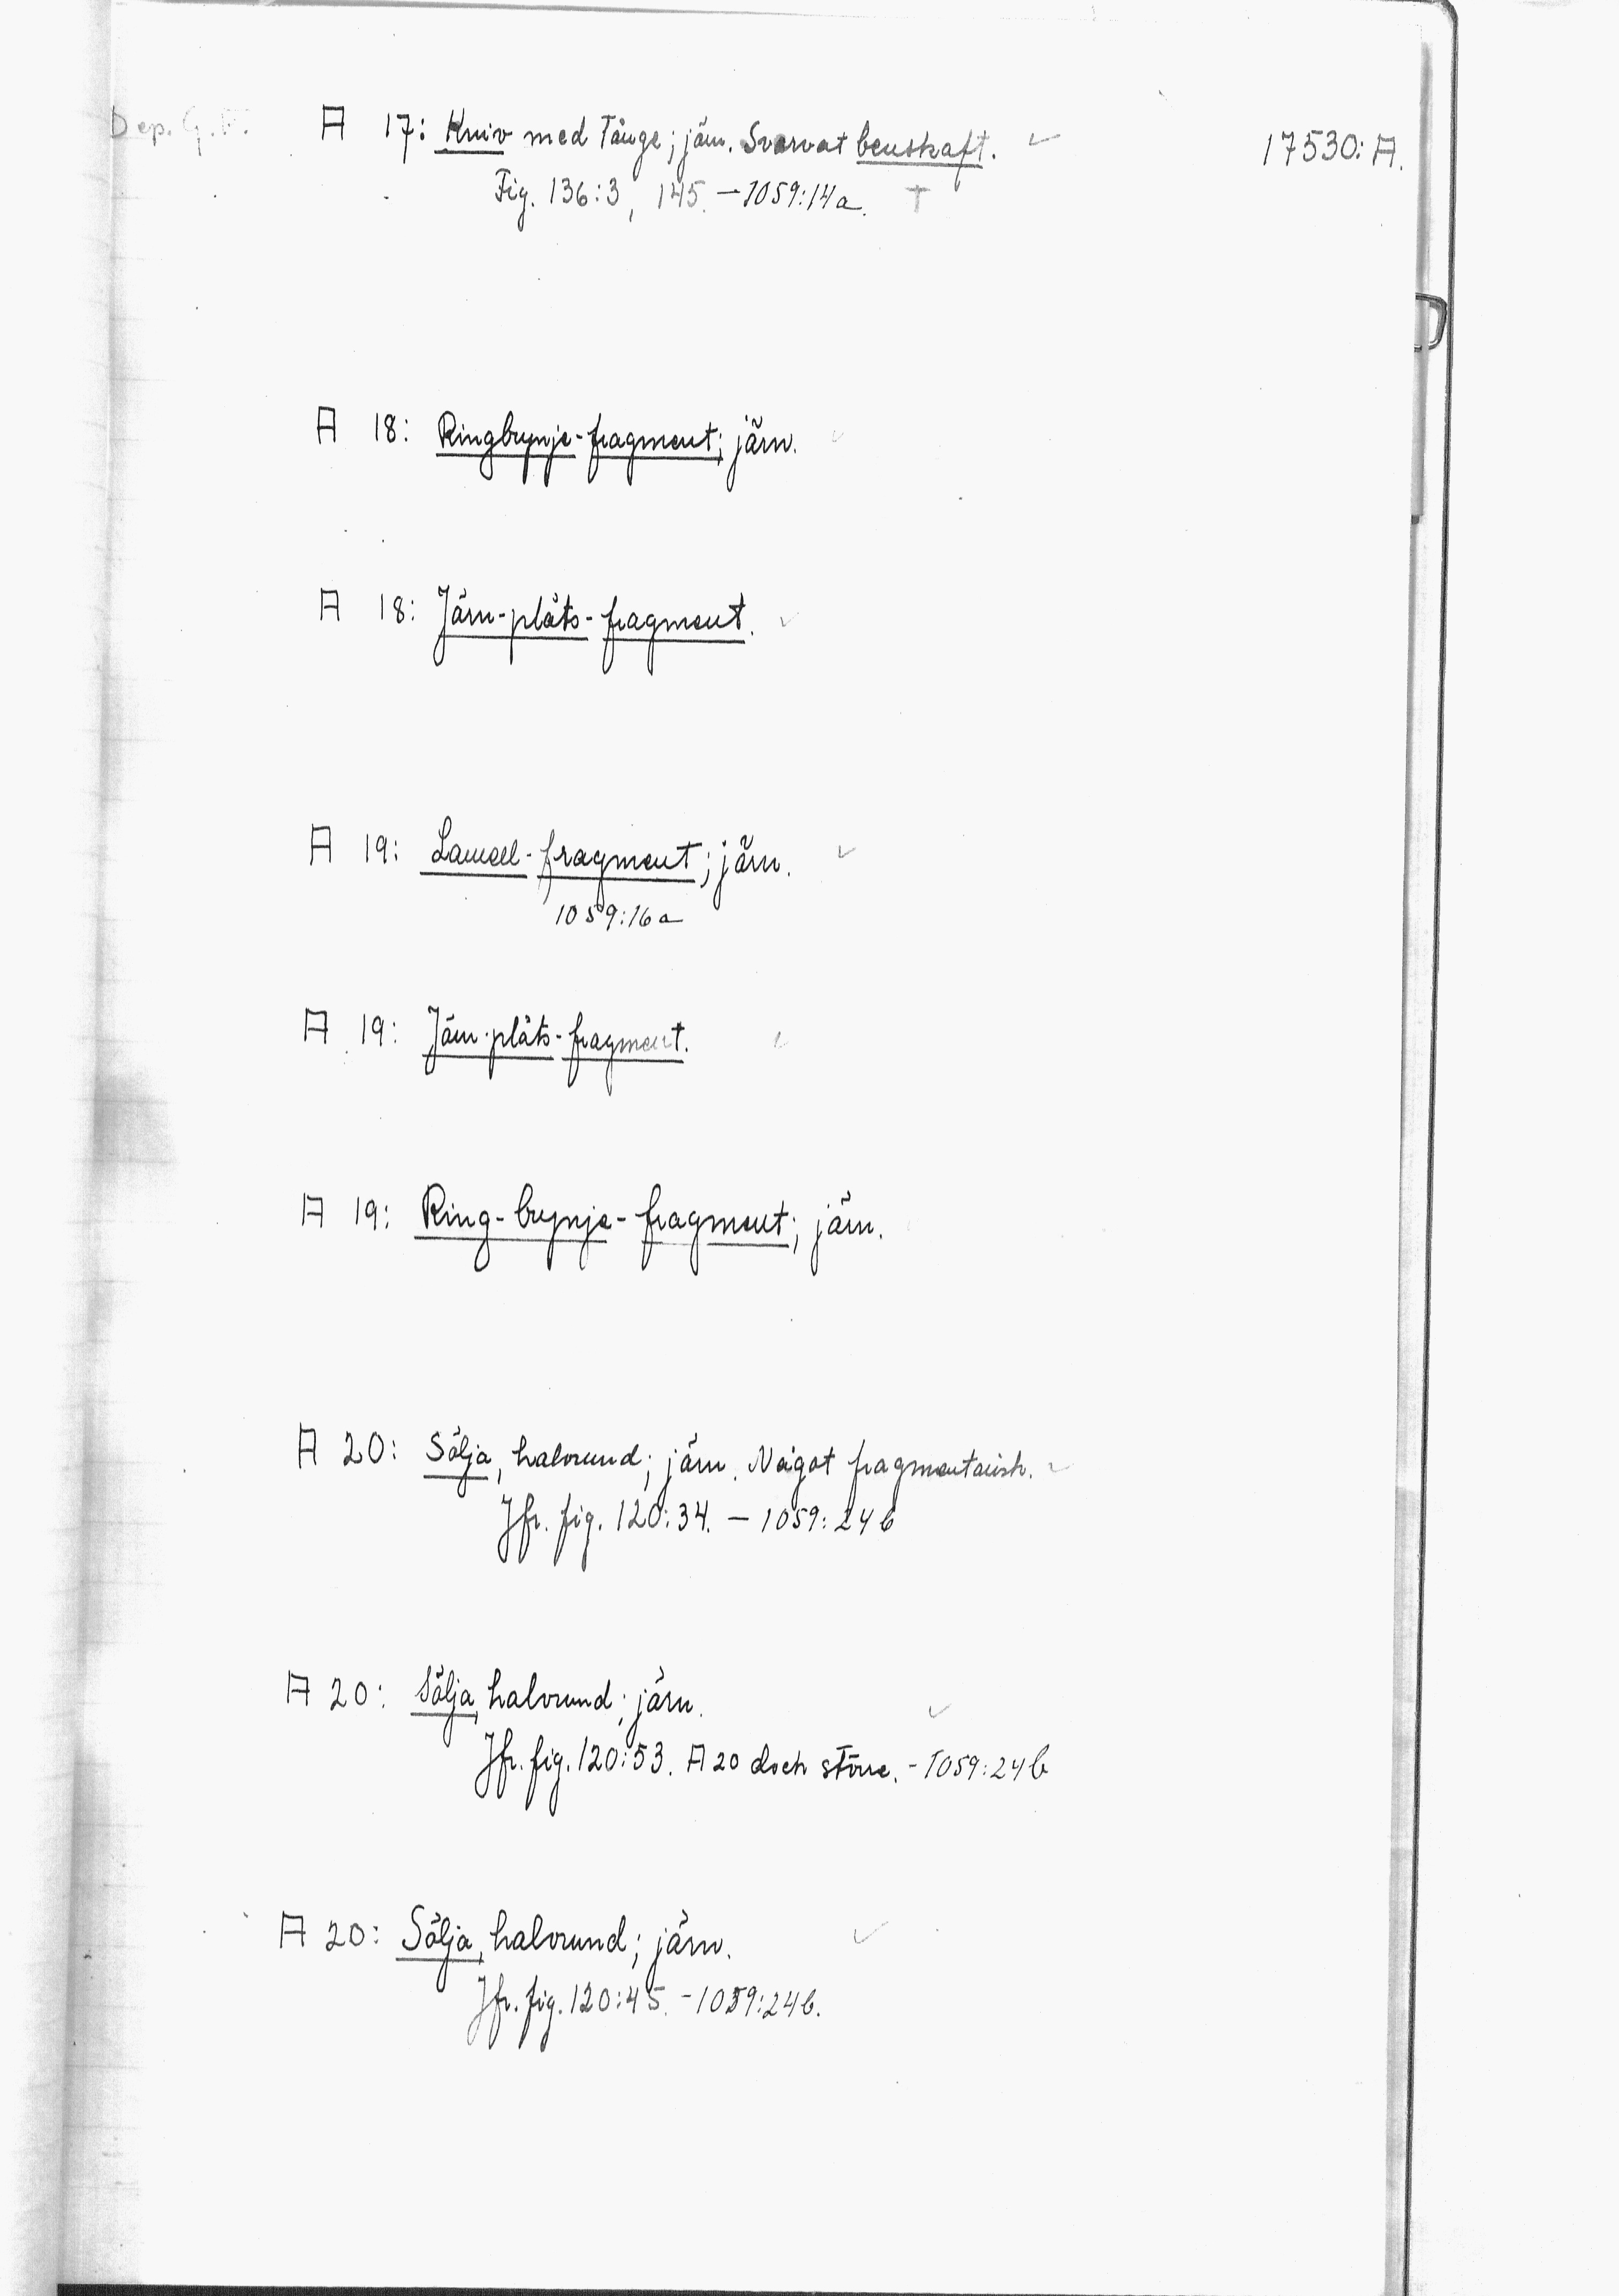 Dep. G.F.
17530:A.
A 17: Kniv med Tånge; järn. Svarvat benskaft. ✓
Fig. 136:3, 145. – 1059:14a. †
A 18: Ringbrynje-fragment; järn. ✓
A 18: Järn-plåts-fragment. ✓
A 19: Lamell-fragment; järn. ✓
1059:16a
A 19: Järn-plåts-fragment. ✓
A 19: Ring-brynje-fragment; järn.
A 20: Sölja, halvrund; järn. Något fragmentarisk. ✓
Jfr. fig. 120:34. – 1059:24b
A 20: Sölja, halvrund; järn. ✓
Jfr. fig. 120:53. A 20 doch större. – 1059:24b
A 20: Sölja, halvrund; järn. ✓
Jfr. fig. 120:45. – 1059:24b.